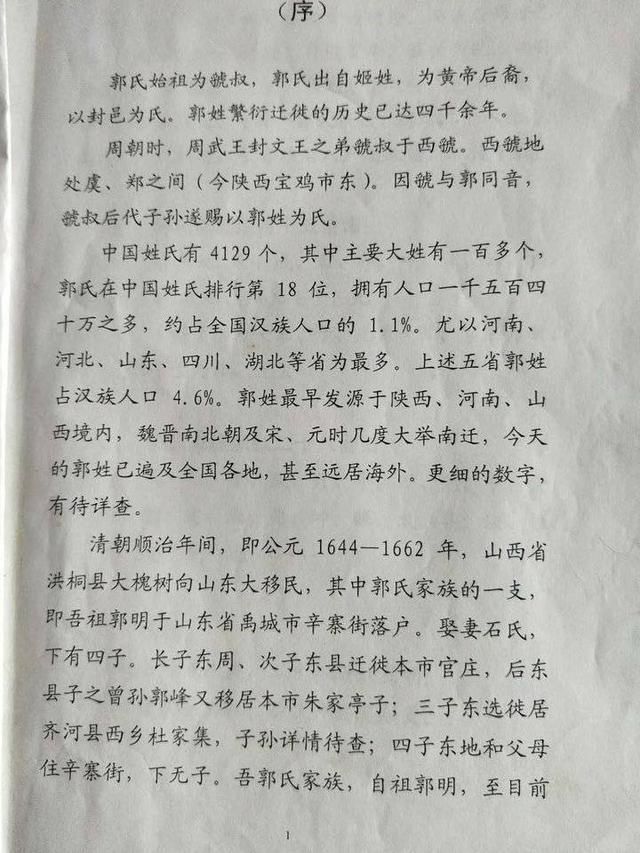 （序）
郭氏始祖为虢叔，郭氏出自姬姓，为黄帝后裔，
以封邑为氏。郭姓繁衍迁徙的历史已达四千余年。
周朝时，周武王封文王之弟虢叔于西虢。西虢地
处虞、郑之间（今陕西宝鸡市东）。因虢与郭同音，
虢叔后代子孙遂赐以郭姓为氏。
中国姓氏有 4129 个，其中主要大姓有一百多个，
郭氏在中国姓氏排行第 18 位，拥有人口一千五百四
十万之多，约占全国汉族人口的 1.1%。尤以河南、
河北、山东、四川、湖北等省为最多。上述五省郭姓
占汉族人口 4.6%。郭姓最早发源于陕西、河南、山
西境内，魏晋南北朝及宋、元时几度大举南迁，今天
的郭姓已遍及全国各地，甚至远居海外。更细的数字，
有待详查。
清朝顺治年间，即公元 1644—1662 年，山西省
洪桐县大槐树向山东大移民，其中郭氏家族的一支，
即吾祖郭明于山东省禹城市辛寨街落户。娶妻石氏，
下有四子。长子东周、次子东县迁徙本市官庄，后东
县子之曾孙郭峰又移居本市朱家亭子；三子东选徙居
齐河县西乡杜家集，子孙详情待查；四子东地和父母
住辛寨街，下无子。吾郭氏家族，自祖郭明，至目前
1